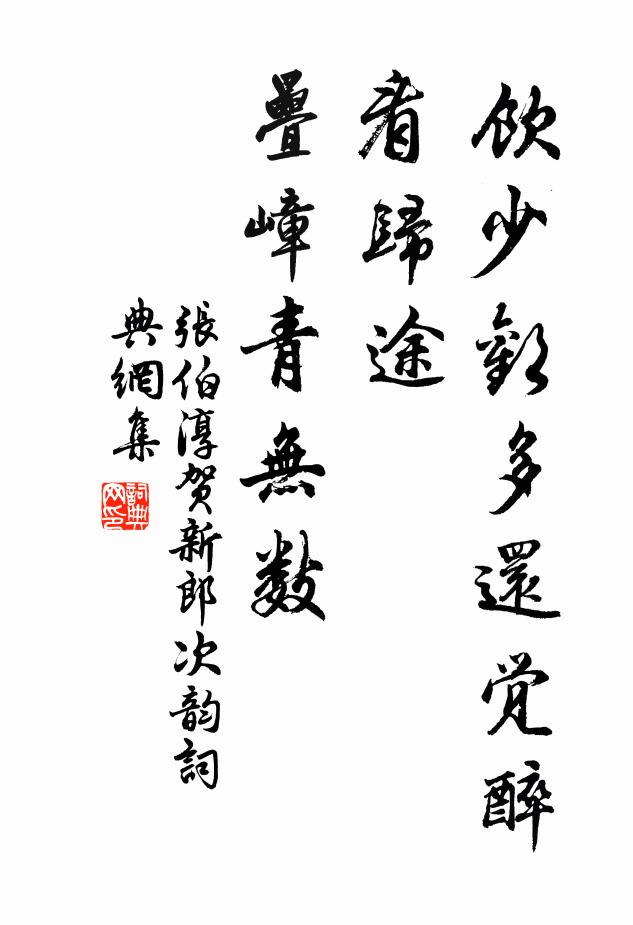 飲少歡多還覺醉
看歸途
疊嶂青無數
張伯淳賀新郎次韵詞
典網集
詞典网印